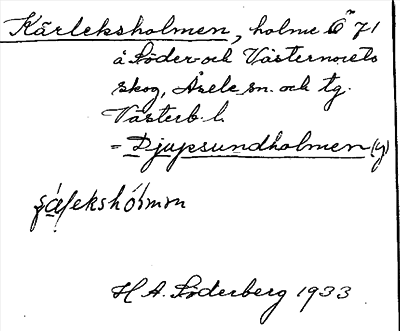 Kärleksholmen, holme Ö 71
å Söder och Västernorets
skog, Åsele sn. och tg.
Västerb. l.
= Djupsundholmen (y)
H A. Söderberg 1933